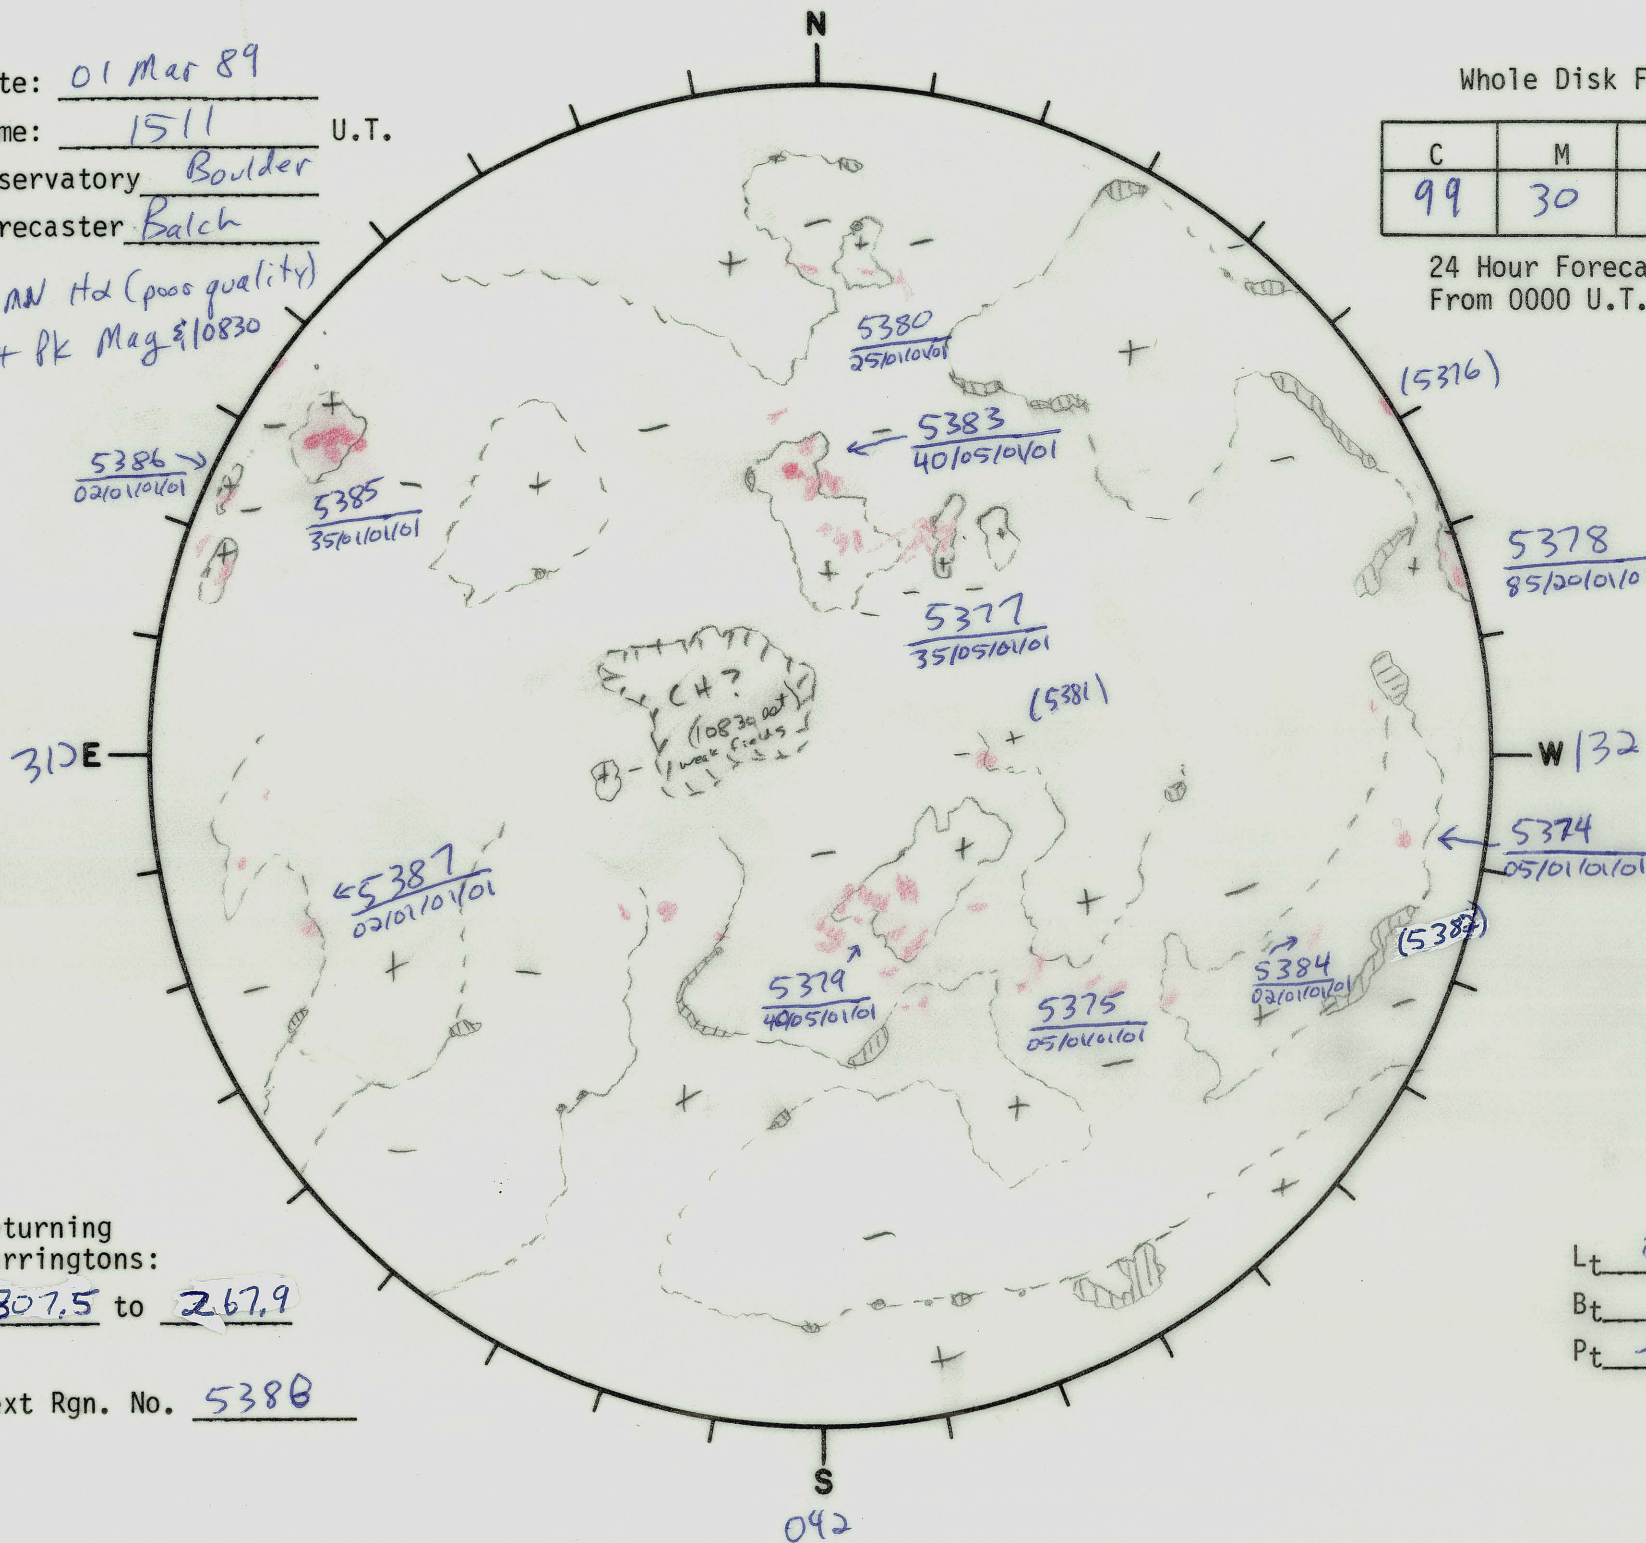 N
te: 01 Mar 89
me: 1511 U.T.
servatory Boulder
recaster Balch
MN Hα (poor quality)
+ Pk Mag & 10830
Whole Disk F
C M
99 30
24 Hour Foreca
From 0000 U.T.
5380
25/01/01/01
(5376)
5383
40/05/01/01
5386
02/01/01/01
5385
35/01/01/01
5378
85/20/01/0
5377
35/05/01/01
CH?
(10830 est)
weak fields
(5381)
E
W 132
5374
05/01/01/01
5387
02/01/01/01
(5382)
5384
02/01/01/01
5379
40/05/01/01
5375
05/01/01/01
turning
rringtons:
307.5 to 267.9
xt Rgn. No. 5388
Lt
Bt
Pt
S
042